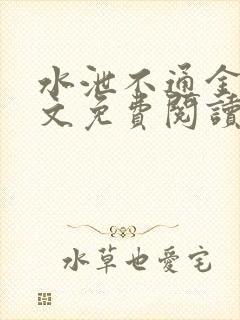 水泄不通全
文免費閱讀
水草也愛宅